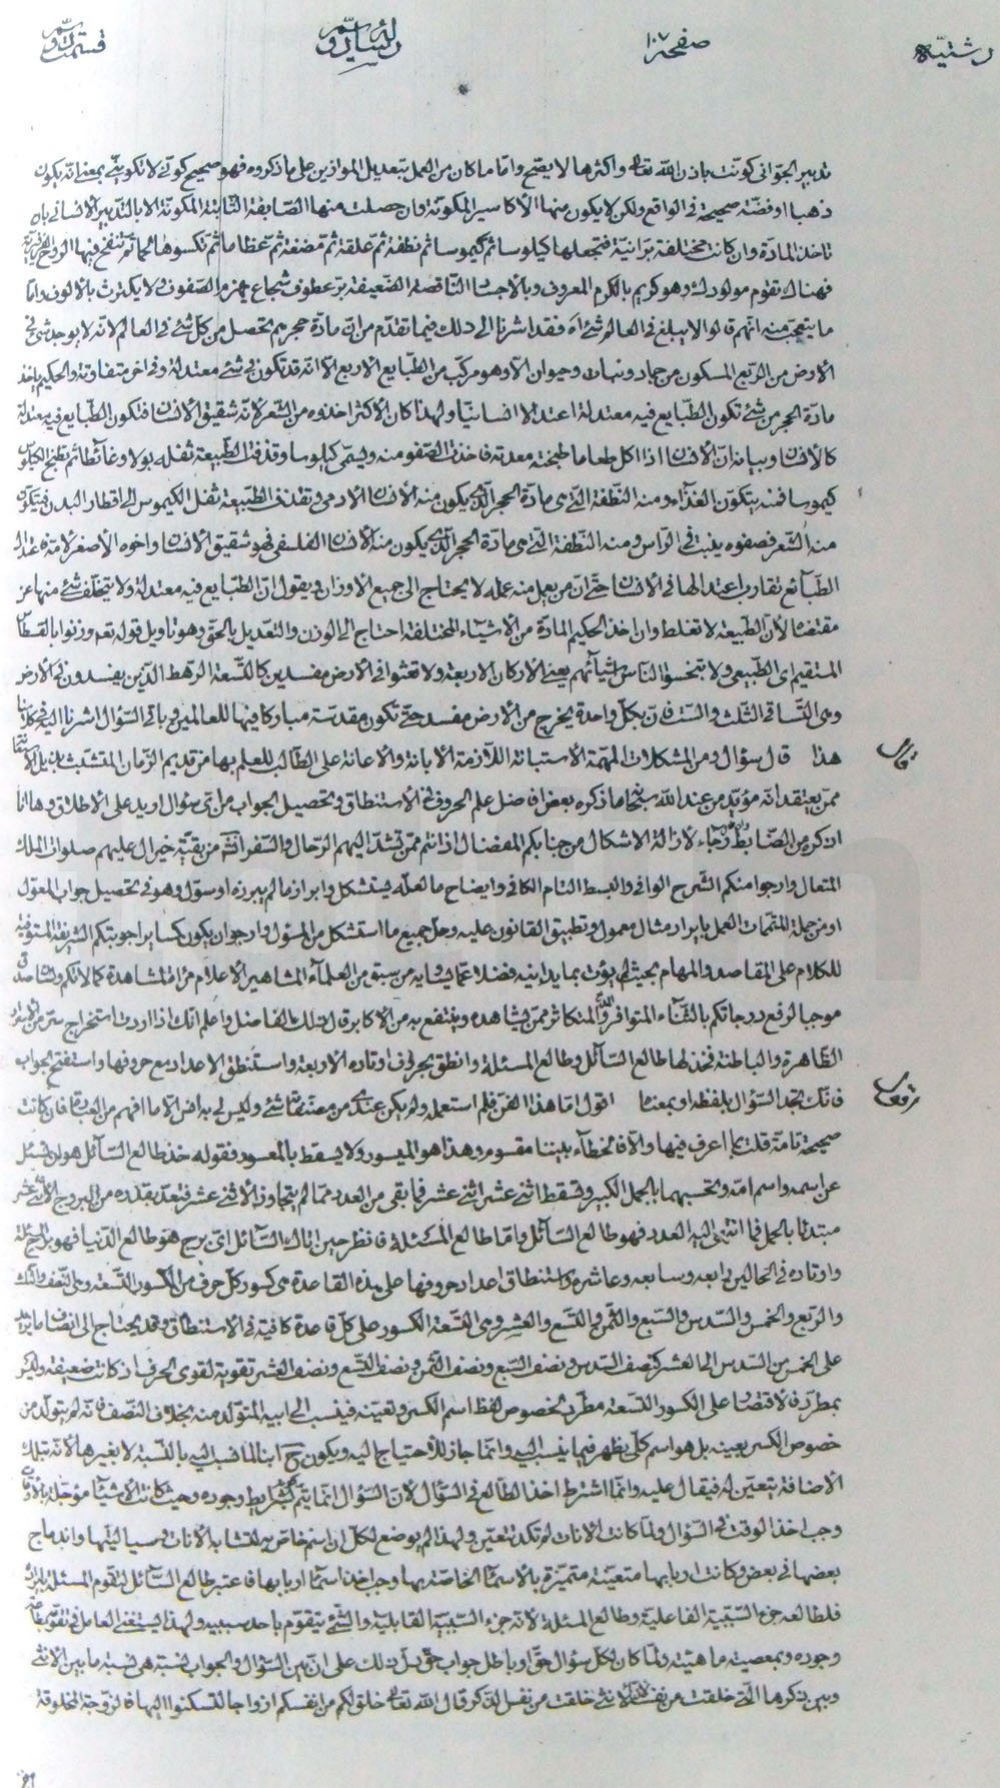 رشتيه صفحة ١٠٧ رسائل وسم قسمت
تدبير الجواني كونت باذن الله تعالى واكثرها لا يصح واما ما كان من العمل بتعديل الموازين على ما ذكروه فهو صحيح كوني لا تكويني بمعنى انه يكون
ذهبا او فضة صحيحة في الواقع ولكن لا يكون منها الأكاسير المكونة وان حصلت منها الصابغة الثابتة المكونة الا بالتدبير الانساني بان
تاخذ المادة وان كانت مختلفة برانية فتجعلها كيلوسا ثم كيموسا ثم نطفة ثم علقة ثم مضغة ثم عظاما ثم تكسوها لحما ثم تنفخ فيها الروح
فهناك تقوم مولود له وهو كريم بالكرم المعروف وبالأجساد الناقصة الضعيفة بر عطوف شجاع يهزم الصفوف ولا يكترث بالألوف واما
ما يتعجب منه انهم قالوا لا يبلغ في العالم شئ فقد اشرنا الى ذلك فيما تقدم من ان مادة حجرهم يحصل من كل شئ في العالم لانه لا يوجد شئ في
الأرض من الربع المسكون من جماد ونبات وحيوان الا وهو مركب من الطبايع الاربع الا انه قد تكون في شئ معتدلة وفي اخر متفاوتة والحكيم ياخذ
مادة الحجر من شئ تكون الطبايع فيه معتدلة اعتدالا انسانيا ولهذا كان الأكثر اخذوه من الشعر لانه شقيق الأنسان فتكون الطبايع فيه معتدلة
كالأنسان وبيانه ان الأنسان اذا اكل طعاما طبخته معدته فاخذت الصفو منه ويسمى كيلوسا وقذفت الطبيعة ثفله بولا وغائطا ثم تطبخ الكيلوس
كيموسا فمنه يتكون الغذاء ومنه النطفة التي هي مادة الحجر الذي يكون منه الأنسان الادمي وتقذف الطبيعة ثفل الكيموس الى اقطار البدن فيتكون
منه الشعر فصفوه ينبت في الراس ومنه النطفة التي هي مادة الحجر الذي يكون منه الأنسان الفلسفي فهو شقيق الأنسان واخوه الأصغر لانه
الطبائع تقارب اعتدالها في الانسان حتى ان من يعمل منه عمله لا يحتاج الى جميع الاوزان ويقول ان الطبايع فيه معتدلة ولا يتخلف شئ منها عن
مقتضاها لأن الطبيعة لا تغلط وان اخذ الحكيم المادة من الأشياء المختلفة احتاج الى الوزن والتعديل بالحق وهو تاويل قوله تعالى وزنوا بالقسطاس
المستقيم اى الطبيعي ولا تبخسوا الناس اشيائهم يعنى الاركان الاربعة ولا تعثوا في الارض مفسدين كالتسعة الرهط الذين يفسدون في الارض
وهى التساقي الثلث والست فان بكل واحدة يخرج من الأرض مفسد حتى تكون مقدسة مباركا فيها للعالمين وباقي السؤال اشرنا اليه في كلامنا
هذا قال سؤال ومن المشكلات المهمة الاستبانة اللازمة الأبانة والأعانة على الطالب للعلم بها من قديم الزمان المتشبث بذيل
ممن يعتقد انه مؤيد من عند الله سبحانه ما ذكره بعض افاضل علم الحروف في الاستنطاق وتحصيل الجواب من اى سؤال اريد على الاطلاق وها انا
اذكر من الضابط رجاء لازالة الاشكال من جنابكم المفضال اذ انتم ممن تشد اليهم الرحال والسفر من بقية خير ال عليهم صلوات الملك
المتعال وارجوا منكم الشرح الوافي والبسط التام الكافي وايضاح ما لعله يستشكل وابراز ما لم يبرزه او سول وهو في تحصيل جواب المعول
او من جملة المتممات العمل بايراد مثال معمول وتطبيق القانون عليه وحل جميع ما استشكل من المسئول وارجو ان يكون كساير اجوبتكم الشريفة المستوفية
للكلام على المقاصد والمهام بحيث لم يؤت بما يدانيه فضلا عما يساويه من سبق من العلماء المشاهير الأعلام
موجبا لرفع درجاتكم بالثناء المتوافر المتكاثر ممن شاهده وينتفع به من الاكابر قال ذلك الفاضل واعلم انك اذا اردت استخراج سر من
الظاهرة والباطنة فخذ لها طالع السائل وطالع المسئلة وانطق بحروف اوتاده الاربعة واستنطق الاعداد مع حروفها واستفتح الجواب
فانك تجد السؤال بلفظه او بمعناه اقول اما هذا الفن فلم استعمله ولم يكن عندى من مصنفاته شئ وليس لي به انس الا ما افهم من العبارة فان كانت
صحيحة تامة قلت بما اعرف فيها والا فالخطاء بيننا مقسوم وهذا هو الميسور ولا يسقط بالمعسور فقوله خذ طالع السائل هو ان تسئل
عن اسمه واسم امه وتحسبهما بالجمل الكبير وتسقط اثنى عشر اثنى عشر فما بقي من العدد مما لم يتجاوز الاثنى عشر فتعد بقدره من البروج الأثنى عشر
مبتدئا بالحمل فما انتهى اليه العدد فهو طالع السائل واما طالع المسئلة فانظر حين اتاك السائل اى برج هو طالع الدنيا فهو برج المسئلة
واوتاده في الحالين رابعه وسابعه وعاشره واستنطاق اعداد حروفها على هذه القاعدة هى كسور كل حرف من الكسور التسعة وهى النصف والثلث
والربع والخمس والسدس والسبع والثمن والتسع والعشر وهى التسعة الكسور على كل قاعدة كافية في الاستنطاق وقد يحتاج الى انصاف ما يزيد
على الخمس من السدس الى العشر كنصف السدس ونصف السبع ونصف الثمن ونصف التسع ونصف العشر تقوية لقوى الحرف اذ كانت ضعيفة وليس
بمطرد فالاقتصار على الكسور التسعة مطرد لخصوص لفظ اسم الكسر وتعينه فينسب الى ابيه المتولد منه بخلاف النصف فانه لم يتولد من
خصوص الكسر بعينه بل هو اسم كلي يظهر فيما ينسب اليه وانما جاز للاحتياج اليه ويكون ح ابنا لما نسب اليه بالنسبة لا بغيرها لأنه بتلك
الأضافة يتعين له فيقال عليه وانما اشترط اخذ الطالع في السؤال لأن السؤال انما يتم بشرايط وجوده وحيث كانت الأشياء مؤجلة بالأوقات
وجب اخذ الوقت في السؤال ولما كانت الأنات لم تكد تتعين ولهذا لم يوضع لكل ان اسم خاص به لتشابه الأنات وسياليتها واندماج
بعضها في بعض وكانت اربابها متعينة متميزة بالأسماء الخاصة بها وجب اخذ اسماء اربابها فاعتبر طالع السائل لتقوم المسئلة
فلطالعه جزء السببية الفاعلية وطالع المسئلة لانه جزء السببية القابلية والشئ يتقوم باحد سببيه ولهذا يستغنى العامل في تقوي
وجوده وبمعصيته ماهيته ولما كان لكل سؤال حق او باطل جواب حق دل ذلك على ان بين السؤال والجواب نسبة هى نسبة ما بين الأنثى
وبين ذكرها التي خلقت من نفسه لانثى خلقت من نفس الذكر قال الله تعالى خلق لكم من انفسكم ازواجا لتسكنوا اليها فالزوجة المخلوقة